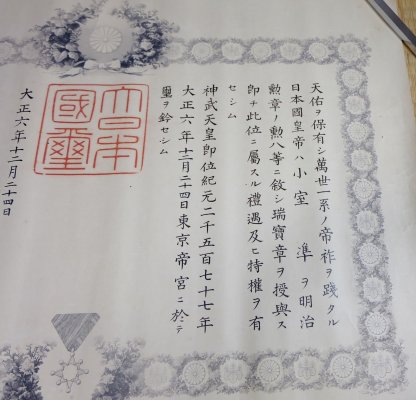 天佑ヲ保有シ萬世一系ノ帝祚ヲ踐タル
日本國皇帝ハ小室 準ヲ明治
勲章ノ勲八等ニ敘シ瑞寶章ヲ授與ス
即チ此位ニ屬スル禮遇及ヒ特權ヲ有
セシム
神武天皇即位紀元二千五百七十七年
大正六年十二月二十四日東京帝宮ニ於テ
璽ヲ鈐セシム
大日本國璽
大正六年十二月二十四日